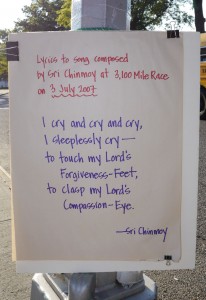 Lyrics to song composed
by Sri Chinmoy at 3,100 Mile Race
on 3 July 2007
I cry and cry and cry,
I sleeplessly cry—
to touch my Lord's
Forgiveness-Feet,
to clasp my Lord's
Compassion-Eye.
—Sri Chinmoy